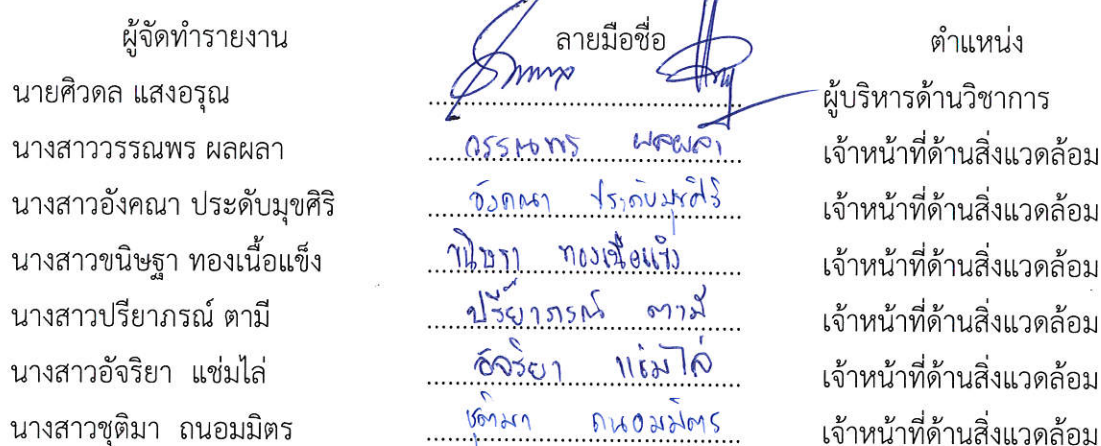 ผู้จัดทำรายงาน ลายมือชื่อ ตำแหน่ง
นายศิวดล แสงอรุณ ผู้บริหารด้านวิชาการ
นางสาววรรณพร ผลผลา วรรณพร ผลผลา เจ้าหน้าที่ด้านสิ่งแวดล้อม
นางสาวอังคณา ประดับมุขศิริ อังคณา ประดับมุขศิริ เจ้าหน้าที่ด้านสิ่งแวดล้อม
นางสาวขนิษฐา ทองเนื้อแข็ง ขนิษฐา ทองเนื้อแข็ง เจ้าหน้าที่ด้านสิ่งแวดล้อม
นางสาวปรียาภรณ์ ตามี ปรียาภรณ์ ตามี เจ้าหน้าที่ด้านสิ่งแวดล้อม
นางสาวอัจริยา แช่มไล่ อัจริยา แช่มไล่ เจ้าหน้าที่ด้านสิ่งแวดล้อม
นางสาวชุติมา ถนอมมิตร ชุติมา ถนอมมิตร เจ้าหน้าที่ด้านสิ่งแวดล้อม